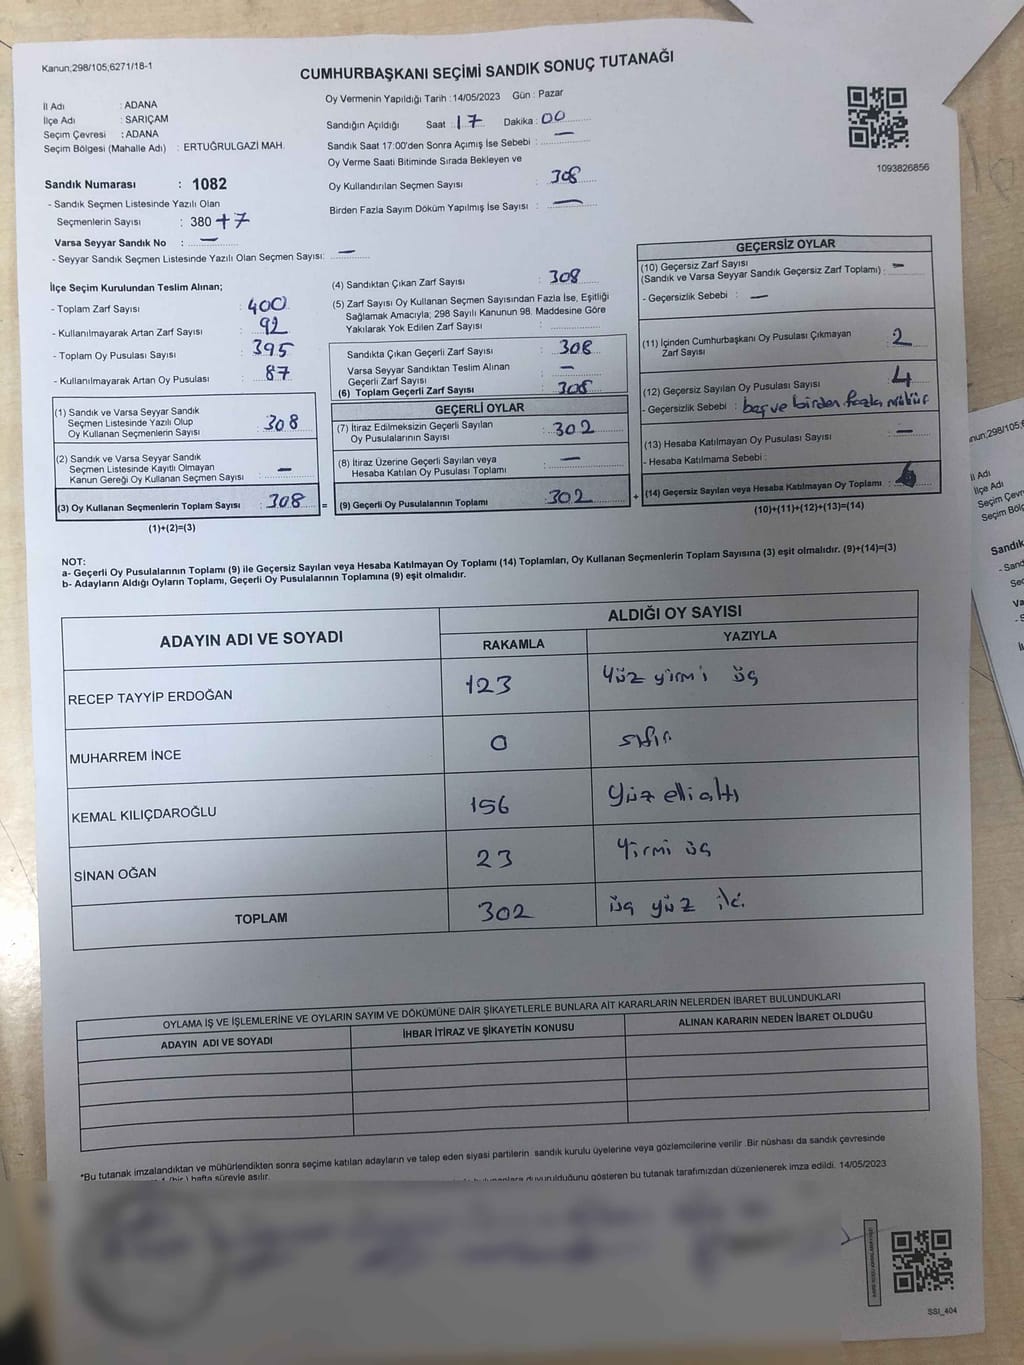 Kanun;298/105,6271/18-1
CUMHURBAŞKANI SEÇİMİ SANDIK SONUÇ TUTANAĞI
İl Adı : ADANA
İlçe Adı : SARIÇAM
Seçim Çevresi : ADANA
Seçim Bölgesi (Mahalle Adı) : ERTUĞRULGAZİ MAH.
Oy Vermenin Yapıldığı Tarih : 14/05/2023 Gün : Pazar
Sandığın Açıldığı Saat : 17 Dakika : 00
Sandık Saat 17:00'den Sonra Açımış İse Sebebi : —
Oy Verme Saati Bitiminde Sırada Bekleyen ve
Oy Kullandırılan Seçmen Sayısı : 308
Birden Fazla Sayım Döküm Yapılmış İse Sayısı : —
1093826856
Sandık Numarası : 1082
- Sandık Seçmen Listesinde Yazılı Olan
Seçmenlerin Sayısı : 380 +7
Varsa Seyyar Sandık No : —
- Seyyar Sandık Seçmen Listesinde Yazılı Olan Seçmen Sayısı: —
İlçe Seçim Kurulundan Teslim Alınan;
- Toplam Zarf Sayısı : 400
- Kullanılmayarak Artan Zarf Sayısı : 92
- Toplam Oy Pusulası Sayısı : 395
- Kullanılmayarak Artan Oy Pusulası : 87
(1) Sandık ve Varsa Seyyar Sandık
Seçmen Listesinde Yazılı Olup
Oy Kullanan Seçmenlerin Sayısı : 308
(2) Sandık ve Varsa Seyyar Sandık
Seçmen Listesinde Kayıtlı Olmayan
Kanun Gereği Oy Kullanan Seçmen Sayısı : —
(3) Oy Kullanan Seçmenlerin Toplam Sayısı : 308 =
(1)+(2)=(3)
(4) Sandıktan Çıkan Zarf Sayısı : 308
(5) Zarf Sayısı Oy Kullanan Seçmen Sayısından Fazla İse, Eşitliği
Sağlamak Amacıyla; 298 Sayılı Kanunun 98. Maddesine Göre
Yakılarak Yok Edilen Zarf Sayısı :
Sandıkta Çıkan Geçerli Zarf Sayısı : 308
Varsa Seyyar Sandıktan Teslim Alınan
Geçerli Zarf Sayısı : —
(6) Toplam Geçerli Zarf Sayısı : 308
GEÇERLİ OYLAR
(7) İtiraz Edilmeksizin Geçerli Sayılan
Oy Pusulalarının Sayısı : 302
(8) İtiraz Üzerine Geçerli Sayılan veya
Hesaba Katılan Oy Pusulası Toplamı : —
(9) Geçerli Oy Pusulalarının Toplamı : 302 +
GEÇERSİZ OYLAR
(10) Geçersiz Zarf Sayısı
(Sandık ve Varsa Seyyar Sandık Geçersiz Zarf Toplamı) : —
- Geçersizlik Sebebi : —
(11) İçinden Cumhurbaşkanı Oy Pusulası Çıkmayan
Zarf Sayısı : 2
(12) Geçersiz Sayılan Oy Pusulası Sayısı : 4
- Geçersizlik Sebebi : boş ve birden fazla mühür
(13) Hesaba Katılmayan Oy Pusulası Sayısı : —
- Hesaba Katılmama Sebebi :
(14) Geçersiz Sayılan veya Hesaba Katılmayan Oy Toplamı : 6
(10)+(11)+(12)+(13)=(14)
NOT:
a- Geçerli Oy Pusulalarının Toplamı (9) ile Geçersiz Sayılan veya Hesaba Katılmayan Oy Toplamı (14) Toplamları, Oy Kullanan Seçmenlerin Toplam Sayısına (3) eşit olmalıdır. (9)+(14)=(3)
b- Adayların Aldığı Oyların Toplamı, Geçerli Oy Pusulalarının Toplamına (9) eşit olmalıdır.
ADAYIN ADI VE SOYADI
ALDIĞI OY SAYISI
RAKAMLA YAZIYLA
RECEP TAYYİP ERDOĞAN 123 Yüz yirmi üç
MUHARREM İNCE 0 sıfır
KEMAL KILIÇDAROĞLU 156 Yüz elli altı
SİNAN OĞAN 23 Yirmi üç
TOPLAM 302 üç yüz iki
OYLAMA İŞ VE İŞLEMLERİNE VE OYLARIN SAYIM VE DÖKÜMÜNE DAİR ŞİKAYETLERLE BUNLARA AİT KARARLARIN NELERDEN İBARET BULUNDUKLARI
ADAYIN ADI VE SOYADI İHBAR İTİRAZ VE ŞİKAYETİN KONUSU ALINAN KARARIN NEDEN İBARET OLDUĞU
*Bu tutanak imzalandıktan ve mühürlendikten sonra seçime katılan adayların ve talep eden siyasi partilerin sandık kurulu üyelerine veya gözlemcilerine verilir .Bir nüshası da sandık çevresinde
(bir) hafta süreyle asılır.
duyurulduğunu gösteren bu tutanak tarafımızdan düzenlenerek imza edildi. 14/05/2023
SSI_404
İl Adı
İlçe Adı
Seçim Çevr
Seçim Bölg
Sandık
- Sand